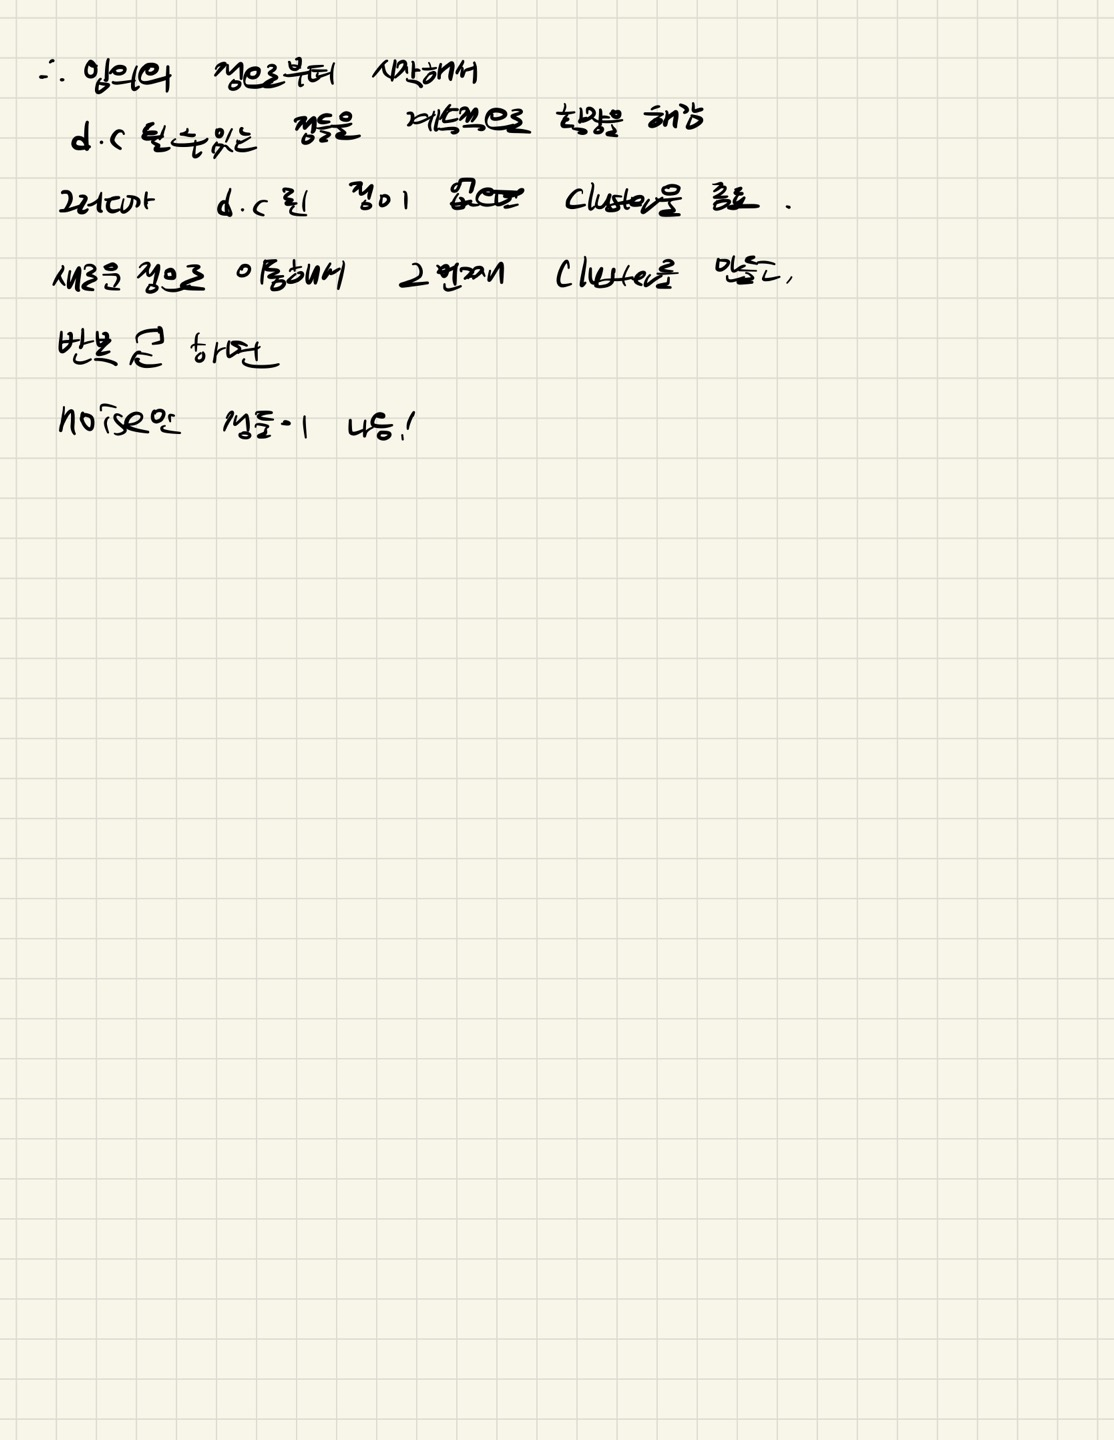 ∴ 임의의 점으로부터 시작해서
d.c 될 수 있는 점들을 계속적으로 확장을 해감
그러다가 d.c 된 점이 없으면 Cluster을 종료.
새로운 점으로 이동해서 2번째 Cluster를 만들고,
반복 하면
noise인 점들이 나옴!